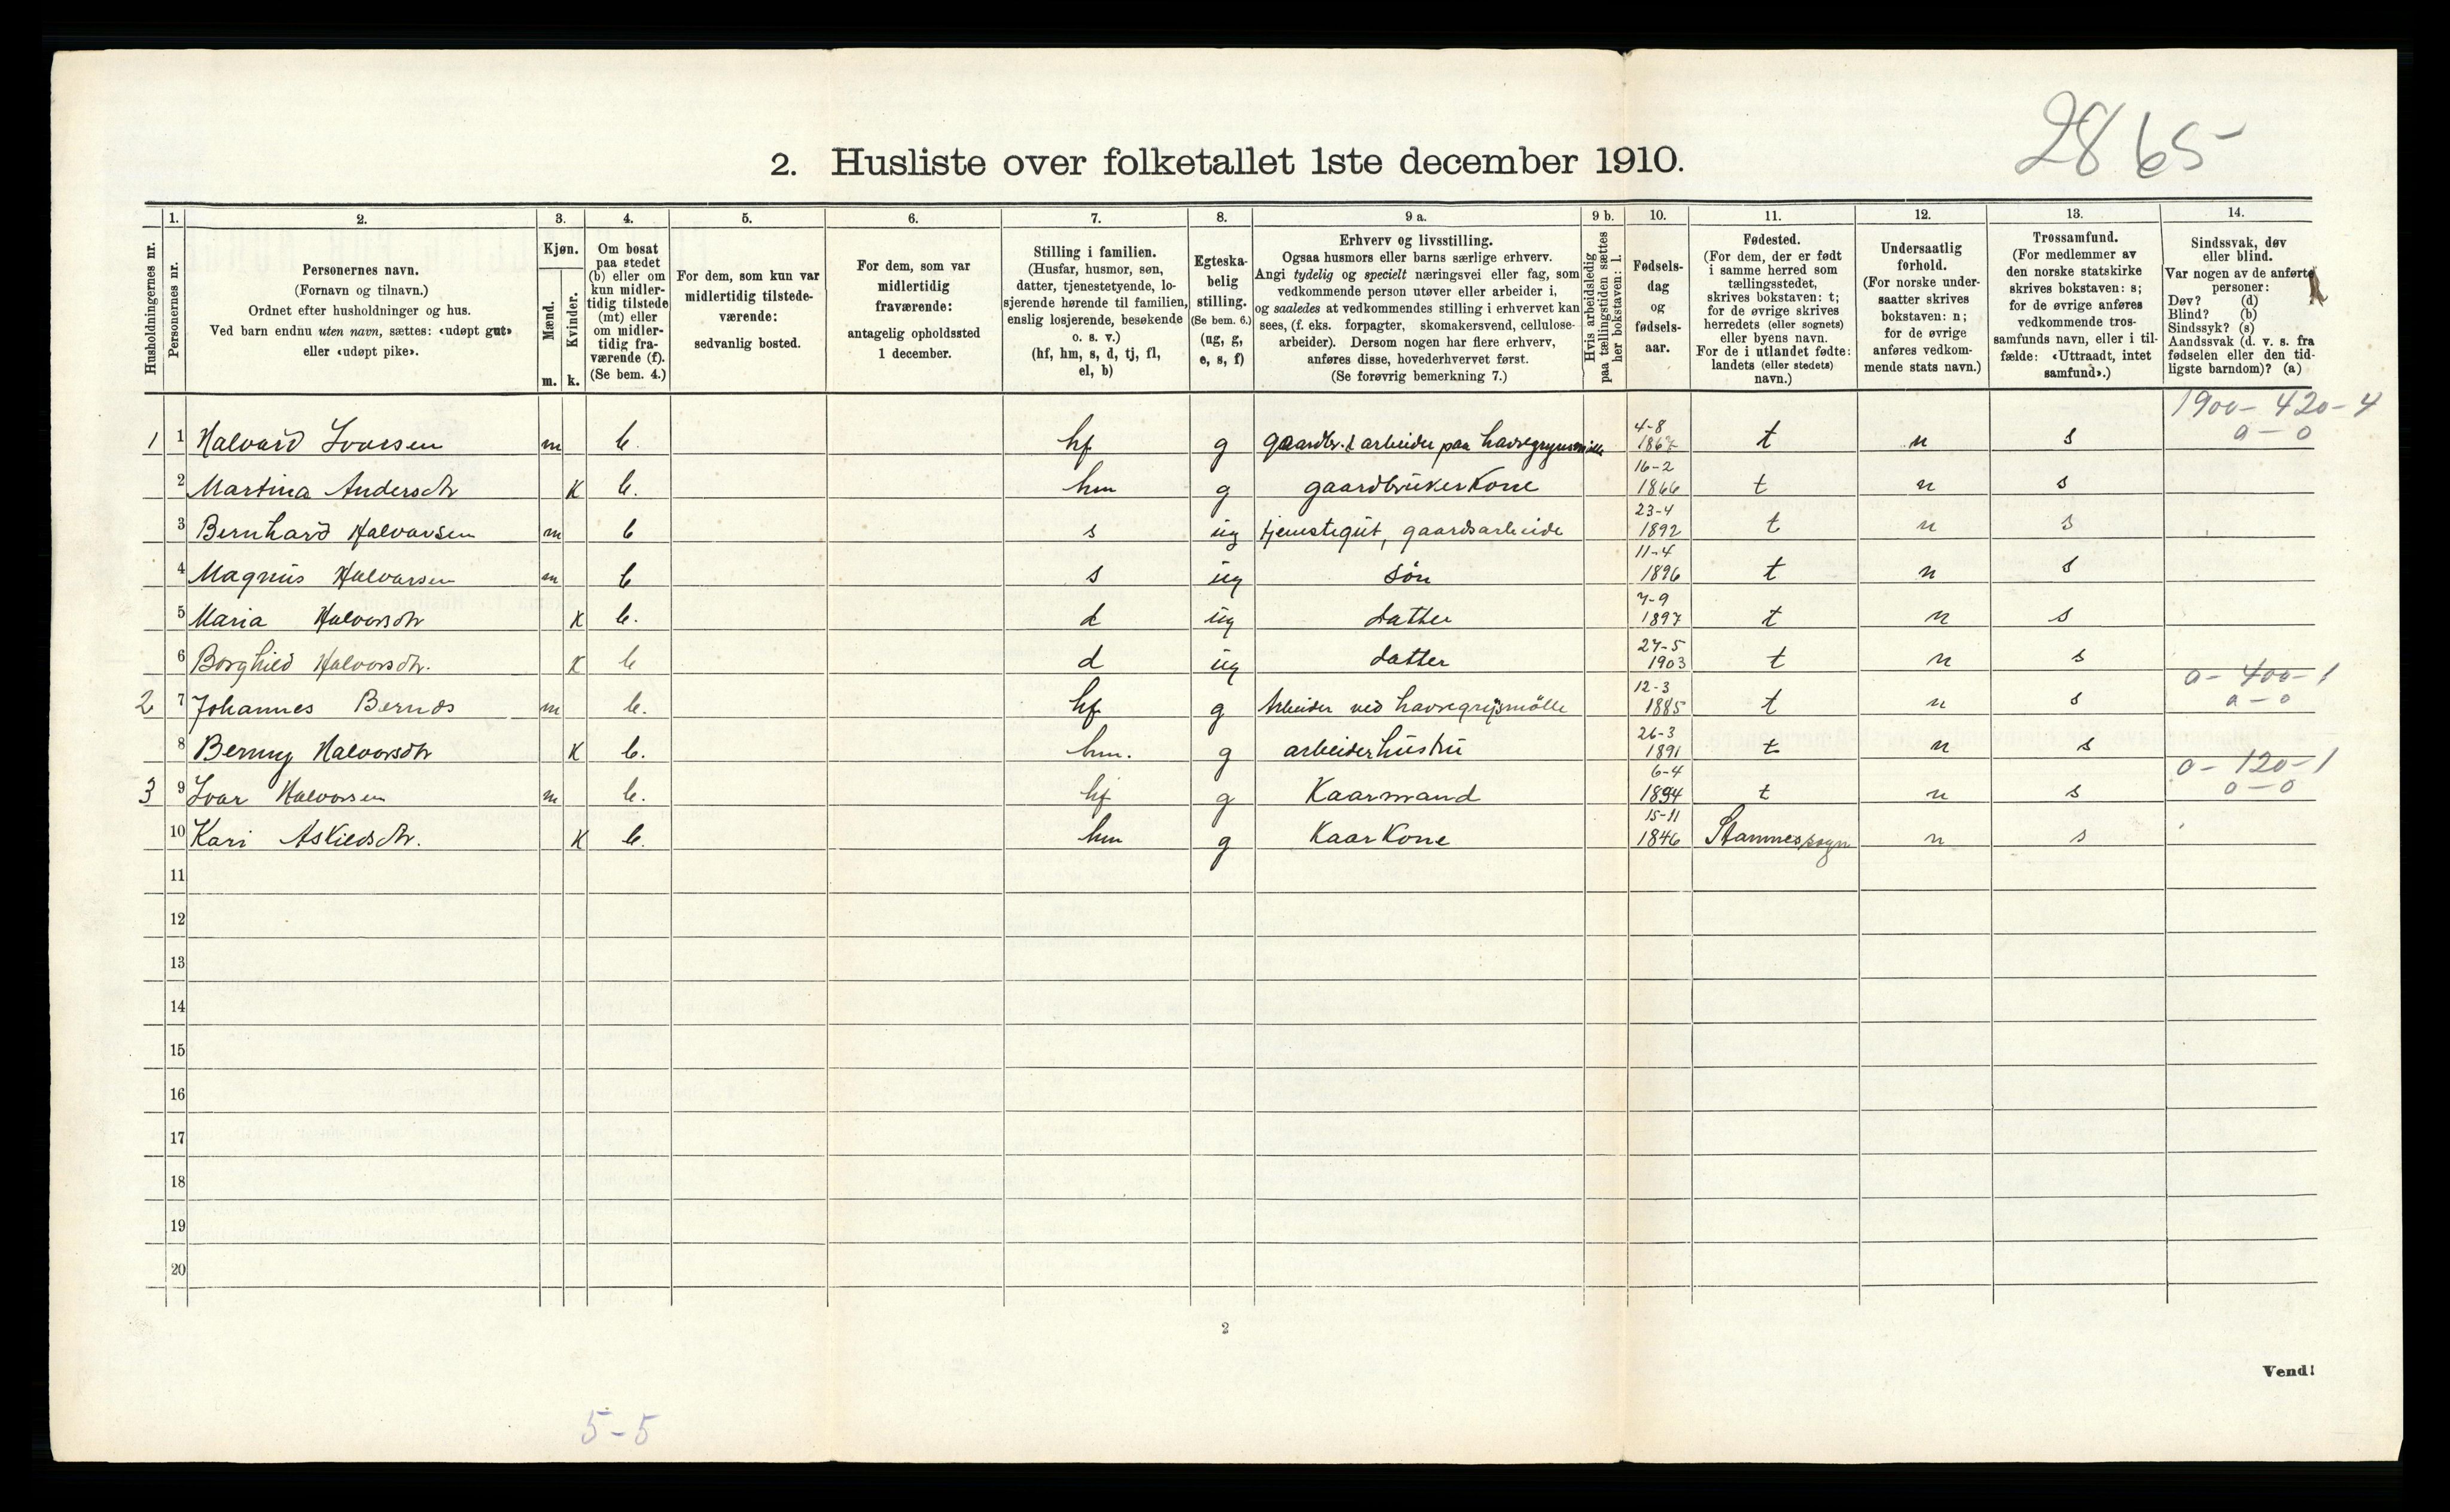 2865
2. Husliste over folketallet 1ste december 1910.
Husholdningernes nr.
1.
Personernes nr.
2.
Personernes navn.
(Fornavn og tilnavn.)
Ordnet efter husholdninger og hus.
Ved barn endnu uten navn, sættes: «udøpt gut»
eller «udøpt pike».
3.
Kjøn.
Mænd.
Kvinder.
m. k.
4.
Om bosat
paa stedet
(b) eller om
kun midler-
tidig tilstede
(mt) eller
om midler-
tidig fra-
værende (f).
(Se bem. 4.)
5.
For dem, som kun var
midlertidig tilstede-
værende:
sedvanlig bosted.
6.
For dem, som var
midlertidig
fraværende:
antagelig opholdssted
1 december.
7.
Stilling i familien.
(Husfar, husmor, søn,
datter, tjenestetyende, lo-
sjerende hørende til familien,
enslig losjerende, besøkende
o. s. v.)
(hf, hm, s, d, tj, fl,
el, b)
8.
Egteska-
belig
stilling.
(Se bem. 6.)
(ug, g,
e, s, f)
9 a.
Erhverv og livsstilling.
Ogsaa husmors eller barns særlige erhverv.
Angi tydelig og specielt næringsvei eller fag, som
vedkommende person utøver eller arbeider i,
og saaledes at vedkommendes stilling i erhvervet kan
sees, (f. eks. forpagter, skomakersvend, cellulose-
arbeider). Dersom nogen har flere erhverv,
anføres disse, hovederhvervet først.
(Se forøvrig bemerkning 7.)
9 b.
Hvis arbeidsledig
paa tællingstiden sættes
her bokstaven: l.
10.
Fødsels-
dag
og
fødsels-
aar.
11.
Fødested.
(For dem, der er født
i samme herred som
tællingsstedet,
skrives bokstaven: t;
for de øvrige skrives
herredets (eller sognets)
eller byens navn.
For de i utlandet fødte:
landets (eller stedets)
navn.)
12.
Undersaatlig
forhold.
(For norske under-
saatter skrives
bokstaven: n;
for de øvrige
anføres vedkom-
mende stats navn.)
13.
Trossamfund.
(For medlemmer av
den norske statskirke
skrives bokstaven: s;
for de øvrige anføres
vedkommende tros-
samfunds navn, eller i til-
fælde: «Uttraadt, intet
samfund».)
14.
Sindssvak, døv
eller blind.
Var nogen av de anførte
personer:
Døv? (d)
Blind? (b)
Sindssyk? (s)
Aandssvak (d. v. s. fra
fødselen eller den tid-
ligste barndom)? (a)
1900 - 420 - 4
1 1 Halvard Ivarsen m b. hf g gaardbr. & arbeider paa havregrynsmølle 4-8 t n s 0 - 0
2 Martina Andersdtr K b. hm g gaardbrukerkone 16-2 1866 t n s
3 Bernhard Halvarsen m b s ug tjenestegut, gaardsarbeide 23-4 1892 t n s
4 Magnus Halvarsen m b s ug søn 11-4 1896 t n s
5 Maria Halvorsdtr K b. d ug datter 7-9 1897 t n s
6 Borghild Halvorsdtr. K b d ug datter 27-5 1903 t n s
0 - 400 - 1
2 7 Johannes Bernds m b. hf g Arbeider ved havregrynsmölle 12-3 1885 t n s 0 - 0
8 Berny Halvorsdtr K b. hm. g arbeiderhustru 26-3 1891 t n s
0 - 120 - 1
3 9 Ivar Halvorsen m b. hf g Kaarmand 6-4 t n s 0 - 0
10 Kari Askildsdtr. K b. hm g Kaarkone 15-11 1846 Stamnes sogn n s
11
12
13
14
15
16
17
18
19
20
2
Vend!
5-5